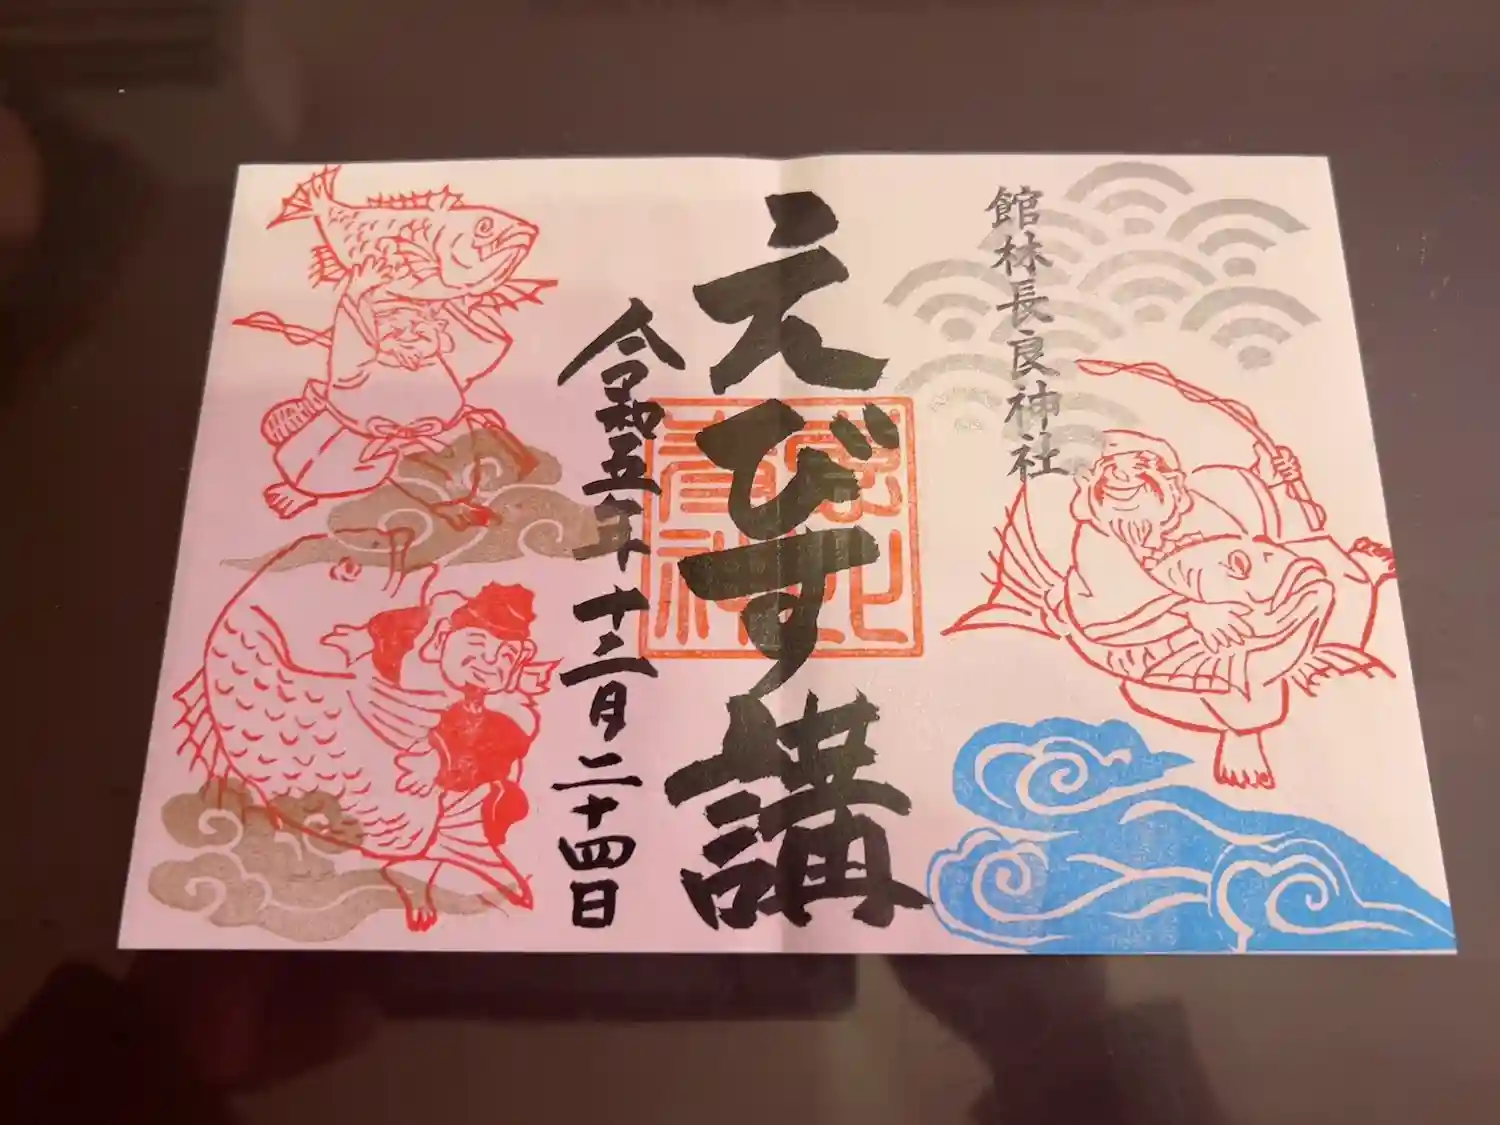 館林長良神社
えびす講
令和五年十二月二十四日